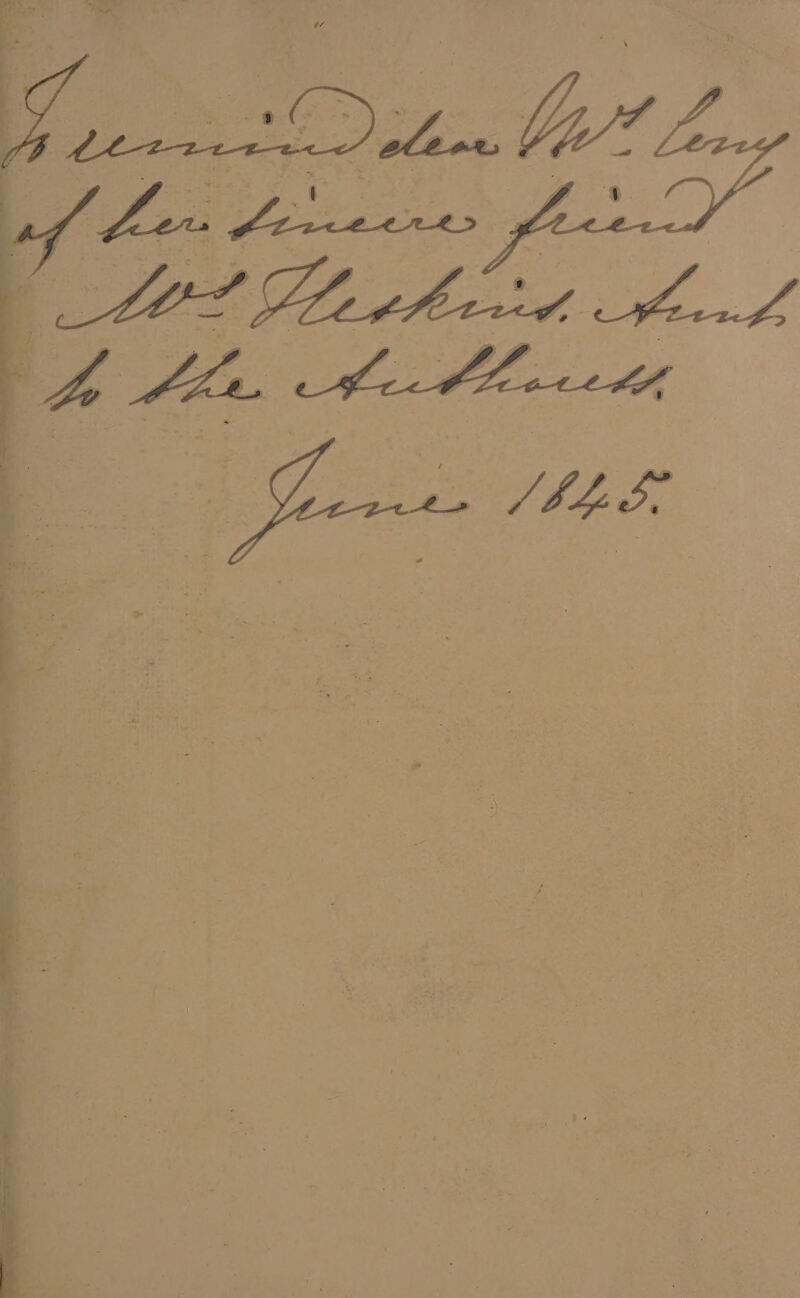 To remind dear Mrs Cony
of her sincere friend
Mrs Heskins. Aunt
to the Authoress.
June 1845.